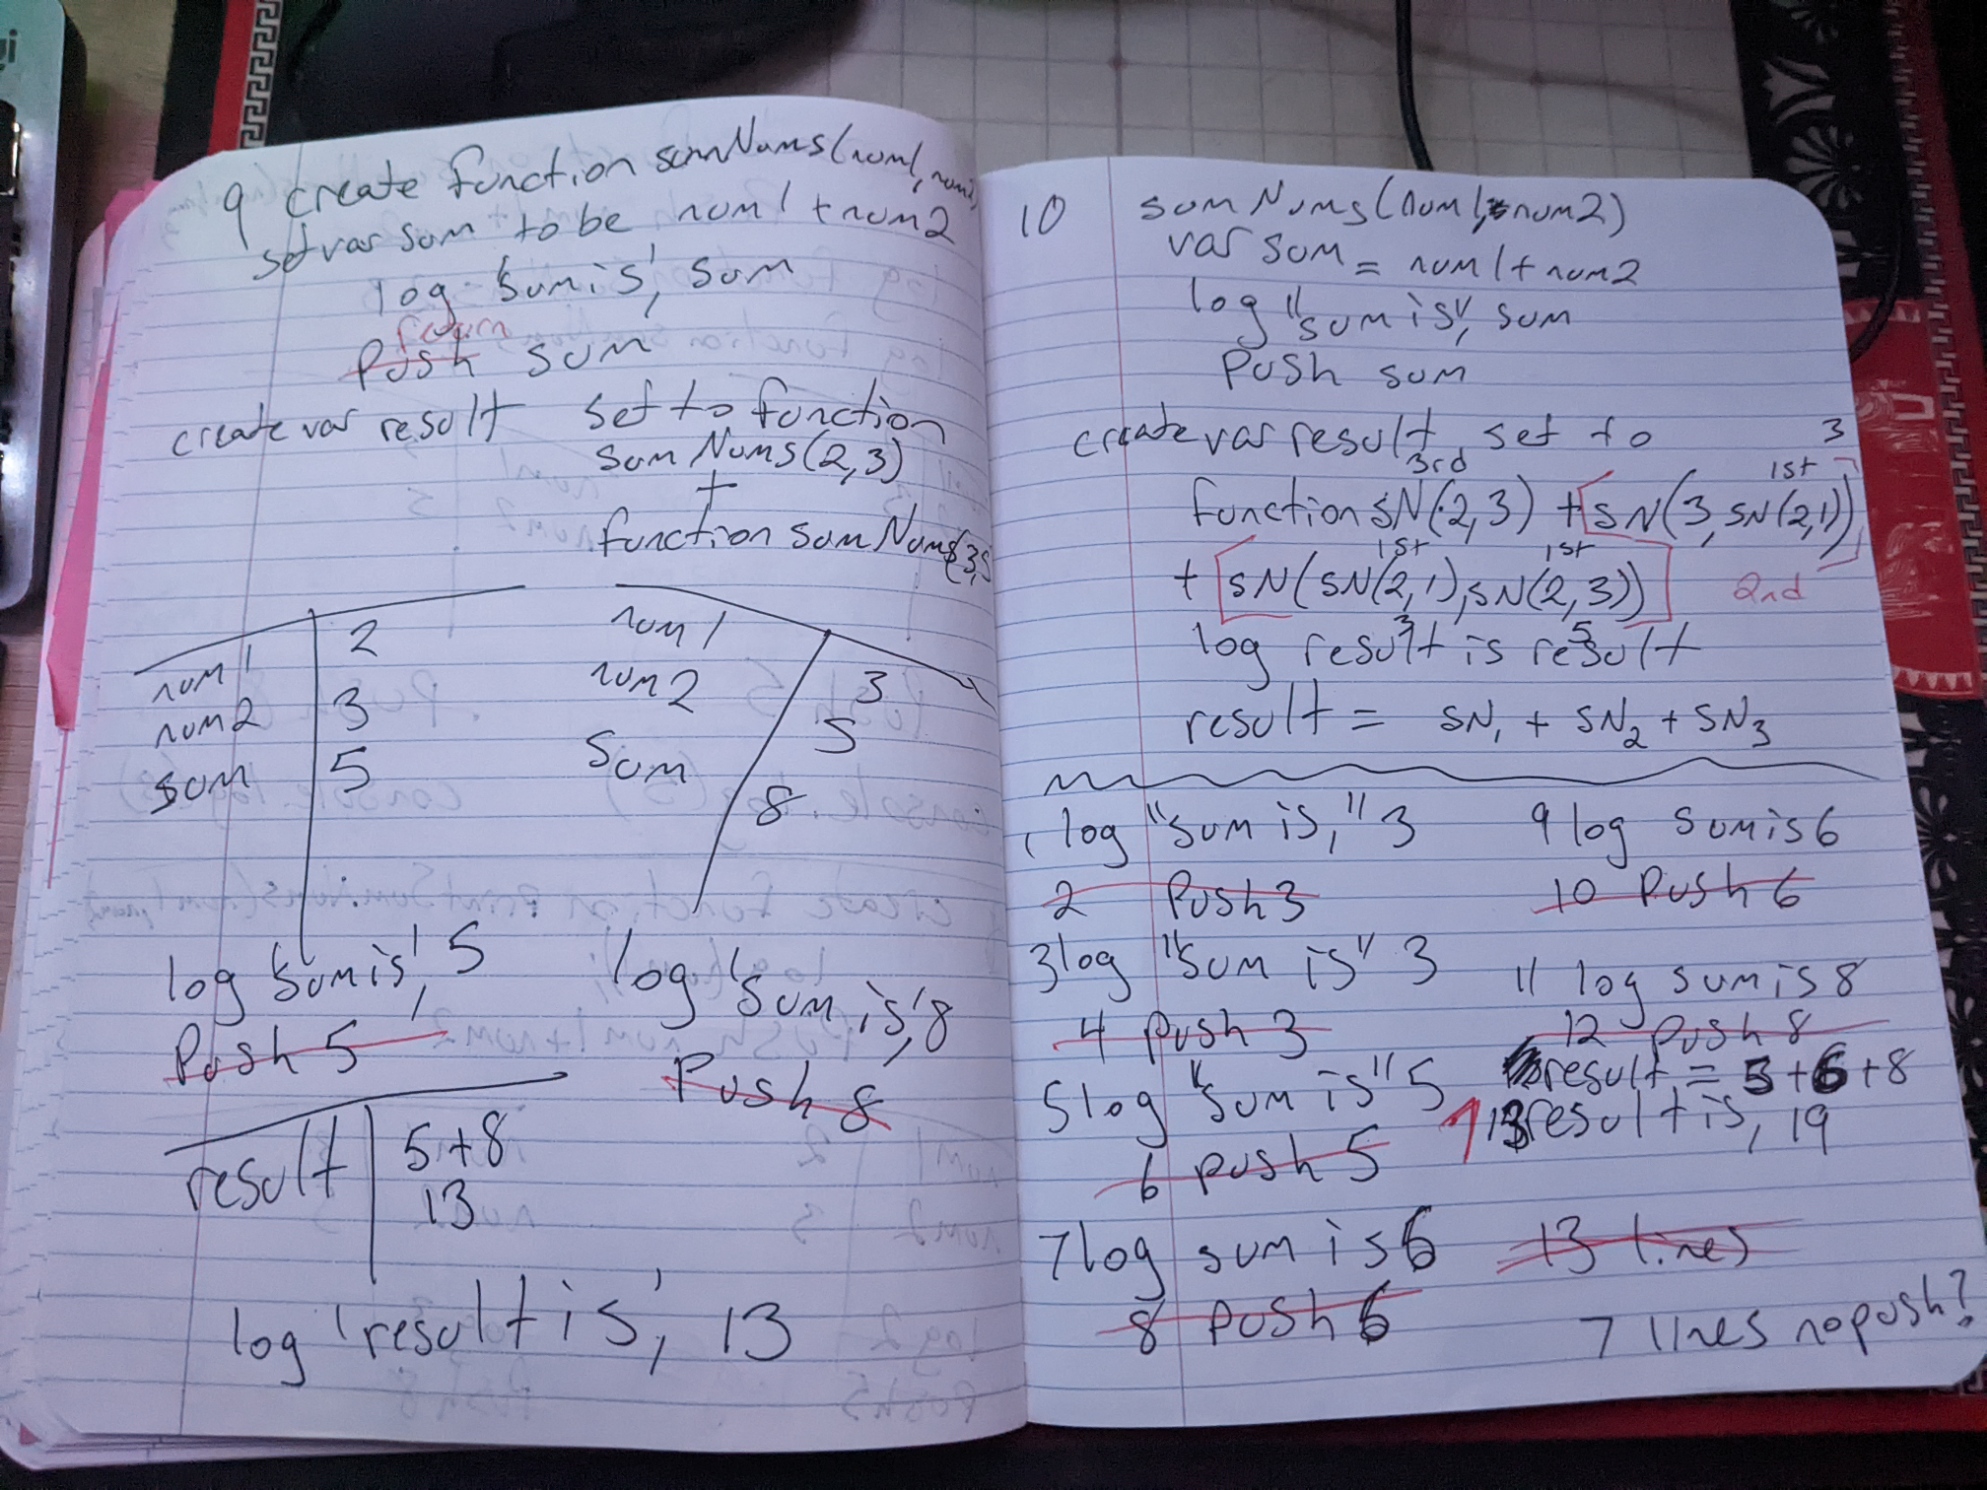 9 create function sumNums(num1, num2)
set var sum to be num1 + num2
log 'sum is', sum
return
Push sum
create var result set to function
sumNums(2,3)
+
function sumNums(3,5
num1 2
num2 3
sum 5
num1 3
num2 5
sum 8
log 'sum is', 5
Push 5
log 'sum is', 8
Push 8
result 5+8
13
log 'result is', 13
10 sumNums(num1, num2)
var sum = num1 + num2
log "sum is", sum
Push sum
create var result set to 3
3rd 1st
function sN(2,3) + sN(3, sN(2,1))
1st 1st
+ sN(sN(2,1), sN(2,3)) 2nd
3 5
log result is result
result = SN1 + SN2 + SN3
1 log "sum is," 3
2 Push 3
3 log "sum is" 3
4 push 3
5 log "sum is" 5
6 push 5
7 log sum is 6
8 push 6
9 log sum is 6
10 Push 6
11 log sum is 8
12 push 8
result = 5+6+8
13 result is, 19
13 lines
7 lines no push?